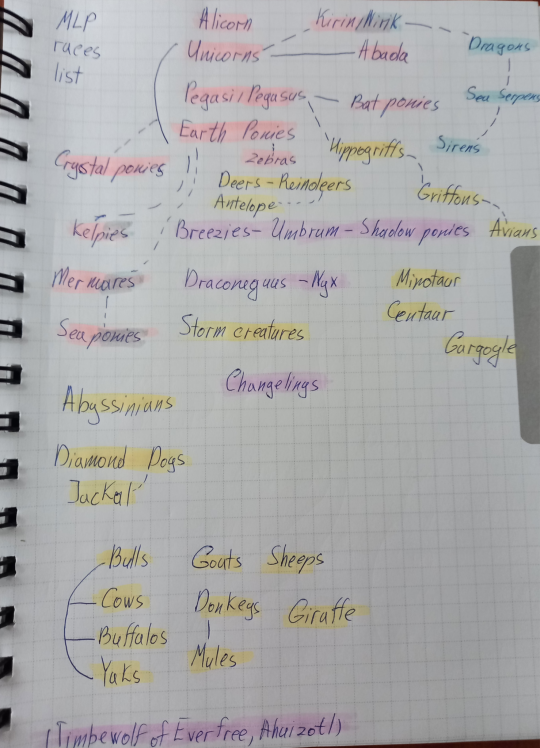 MLP
races
list
Alicorn
Kirin/Nirik
Unicorns
Abada
Dragons
Pegasi/Pegasus
Bat ponies
Sea Serpens
Earth Ponies
Zebras
Hippogriffs
Sirens
Crystal ponies
Deers - Reindeers
Antelope
Griffons
Kelpies
Breezies - Umbrum - Shadow ponies
Avians
Mermares
Draconequus - Nyx
Minotaur
Centaur
Sea ponies
Storm creatures
Gargogle
Changelings
Abyssinians
Diamond Dogs
Jackal
Bulls
Goats
Sheeps
Cows
Donkeys
Giraffe
Buffalos
Mules
Yaks
(Timbewolf of Everfree, Ahuizotl)